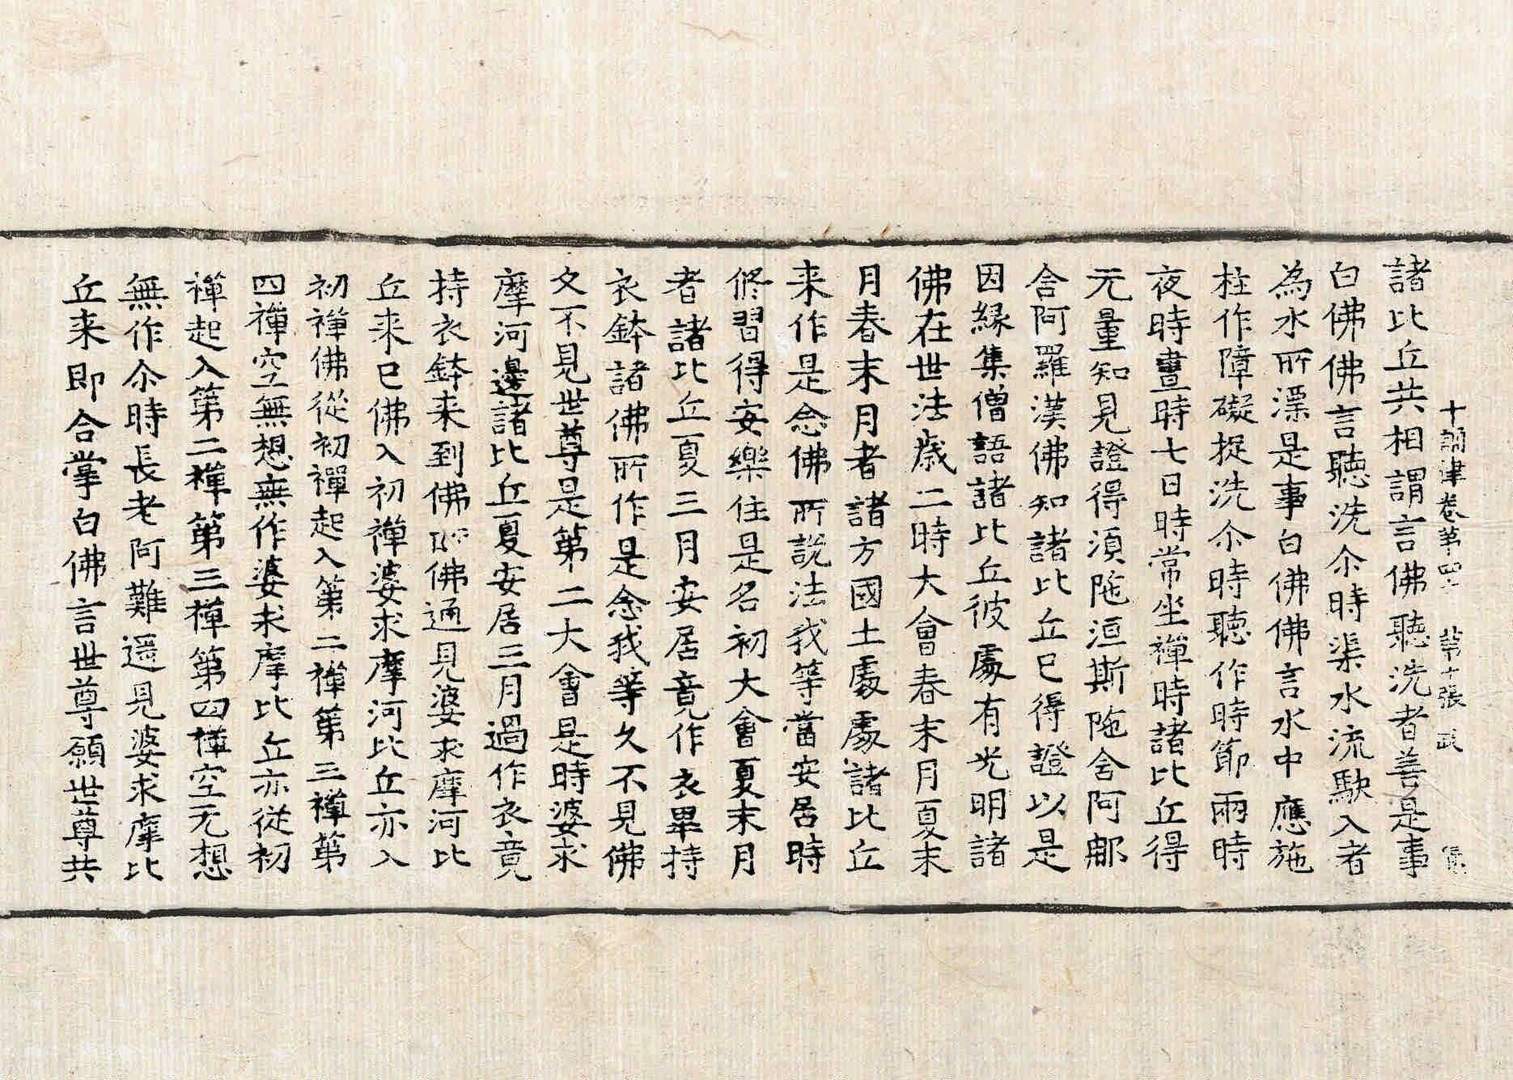 十誦律卷第四十 第十張 政
諸比丘共相謂言佛聽洗者善是事
白佛佛言聽洗尒時渠水流駃入者
為水所漂是事白佛佛言水中應施
柱作障礙捉洗尒時聽作時節兩時
夜時晝時七日時常坐禪時諸比丘得
无量知見證得湏陁洹斯陁含阿那
含阿羅漢佛知諸比丘已得證以是
因緣集僧語諸比丘彼處有光明諸
佛在世法歲二時大會春末月夏末
月春末月者諸方國土處處諸比丘
来作是念佛所說法我等當安居時
修習得安樂住是名初大會夏末月
者諸比丘夏三月安居竟作衣畢持
衣鉢諸佛所作是念我等久不見佛
久不見世尊是第二大會是時婆求
摩河邊諸比丘夏安居三月過作衣竟
持衣鉢来到佛所佛通見婆求摩河比
丘来已佛入初禪婆求摩河比丘亦入
初禪佛從初禪起入第二禪第三禪第
四禪空無想無作婆求摩比丘亦從初
禪起入第二禪第三禪第四禪空无想
無作尒時長老阿難遥見婆求摩比
丘来即合掌白佛言世尊願世尊共